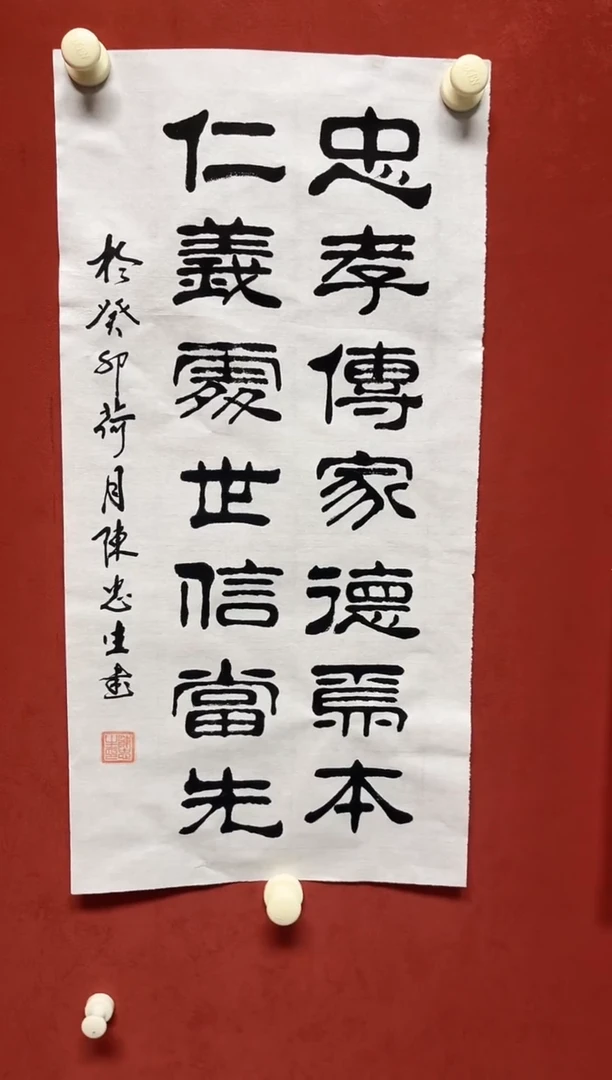 忠孝傳家德為本
仁義處世信當先
於癸卯荷月陳忠生書